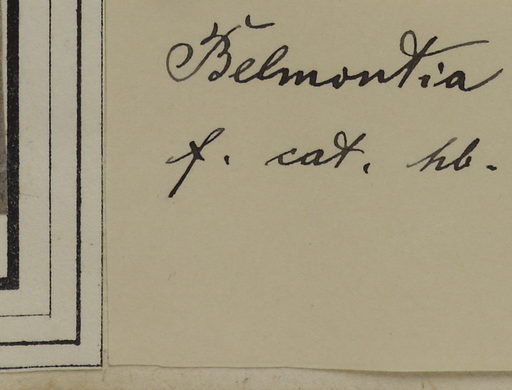 Belmontia
f. cat. hb.